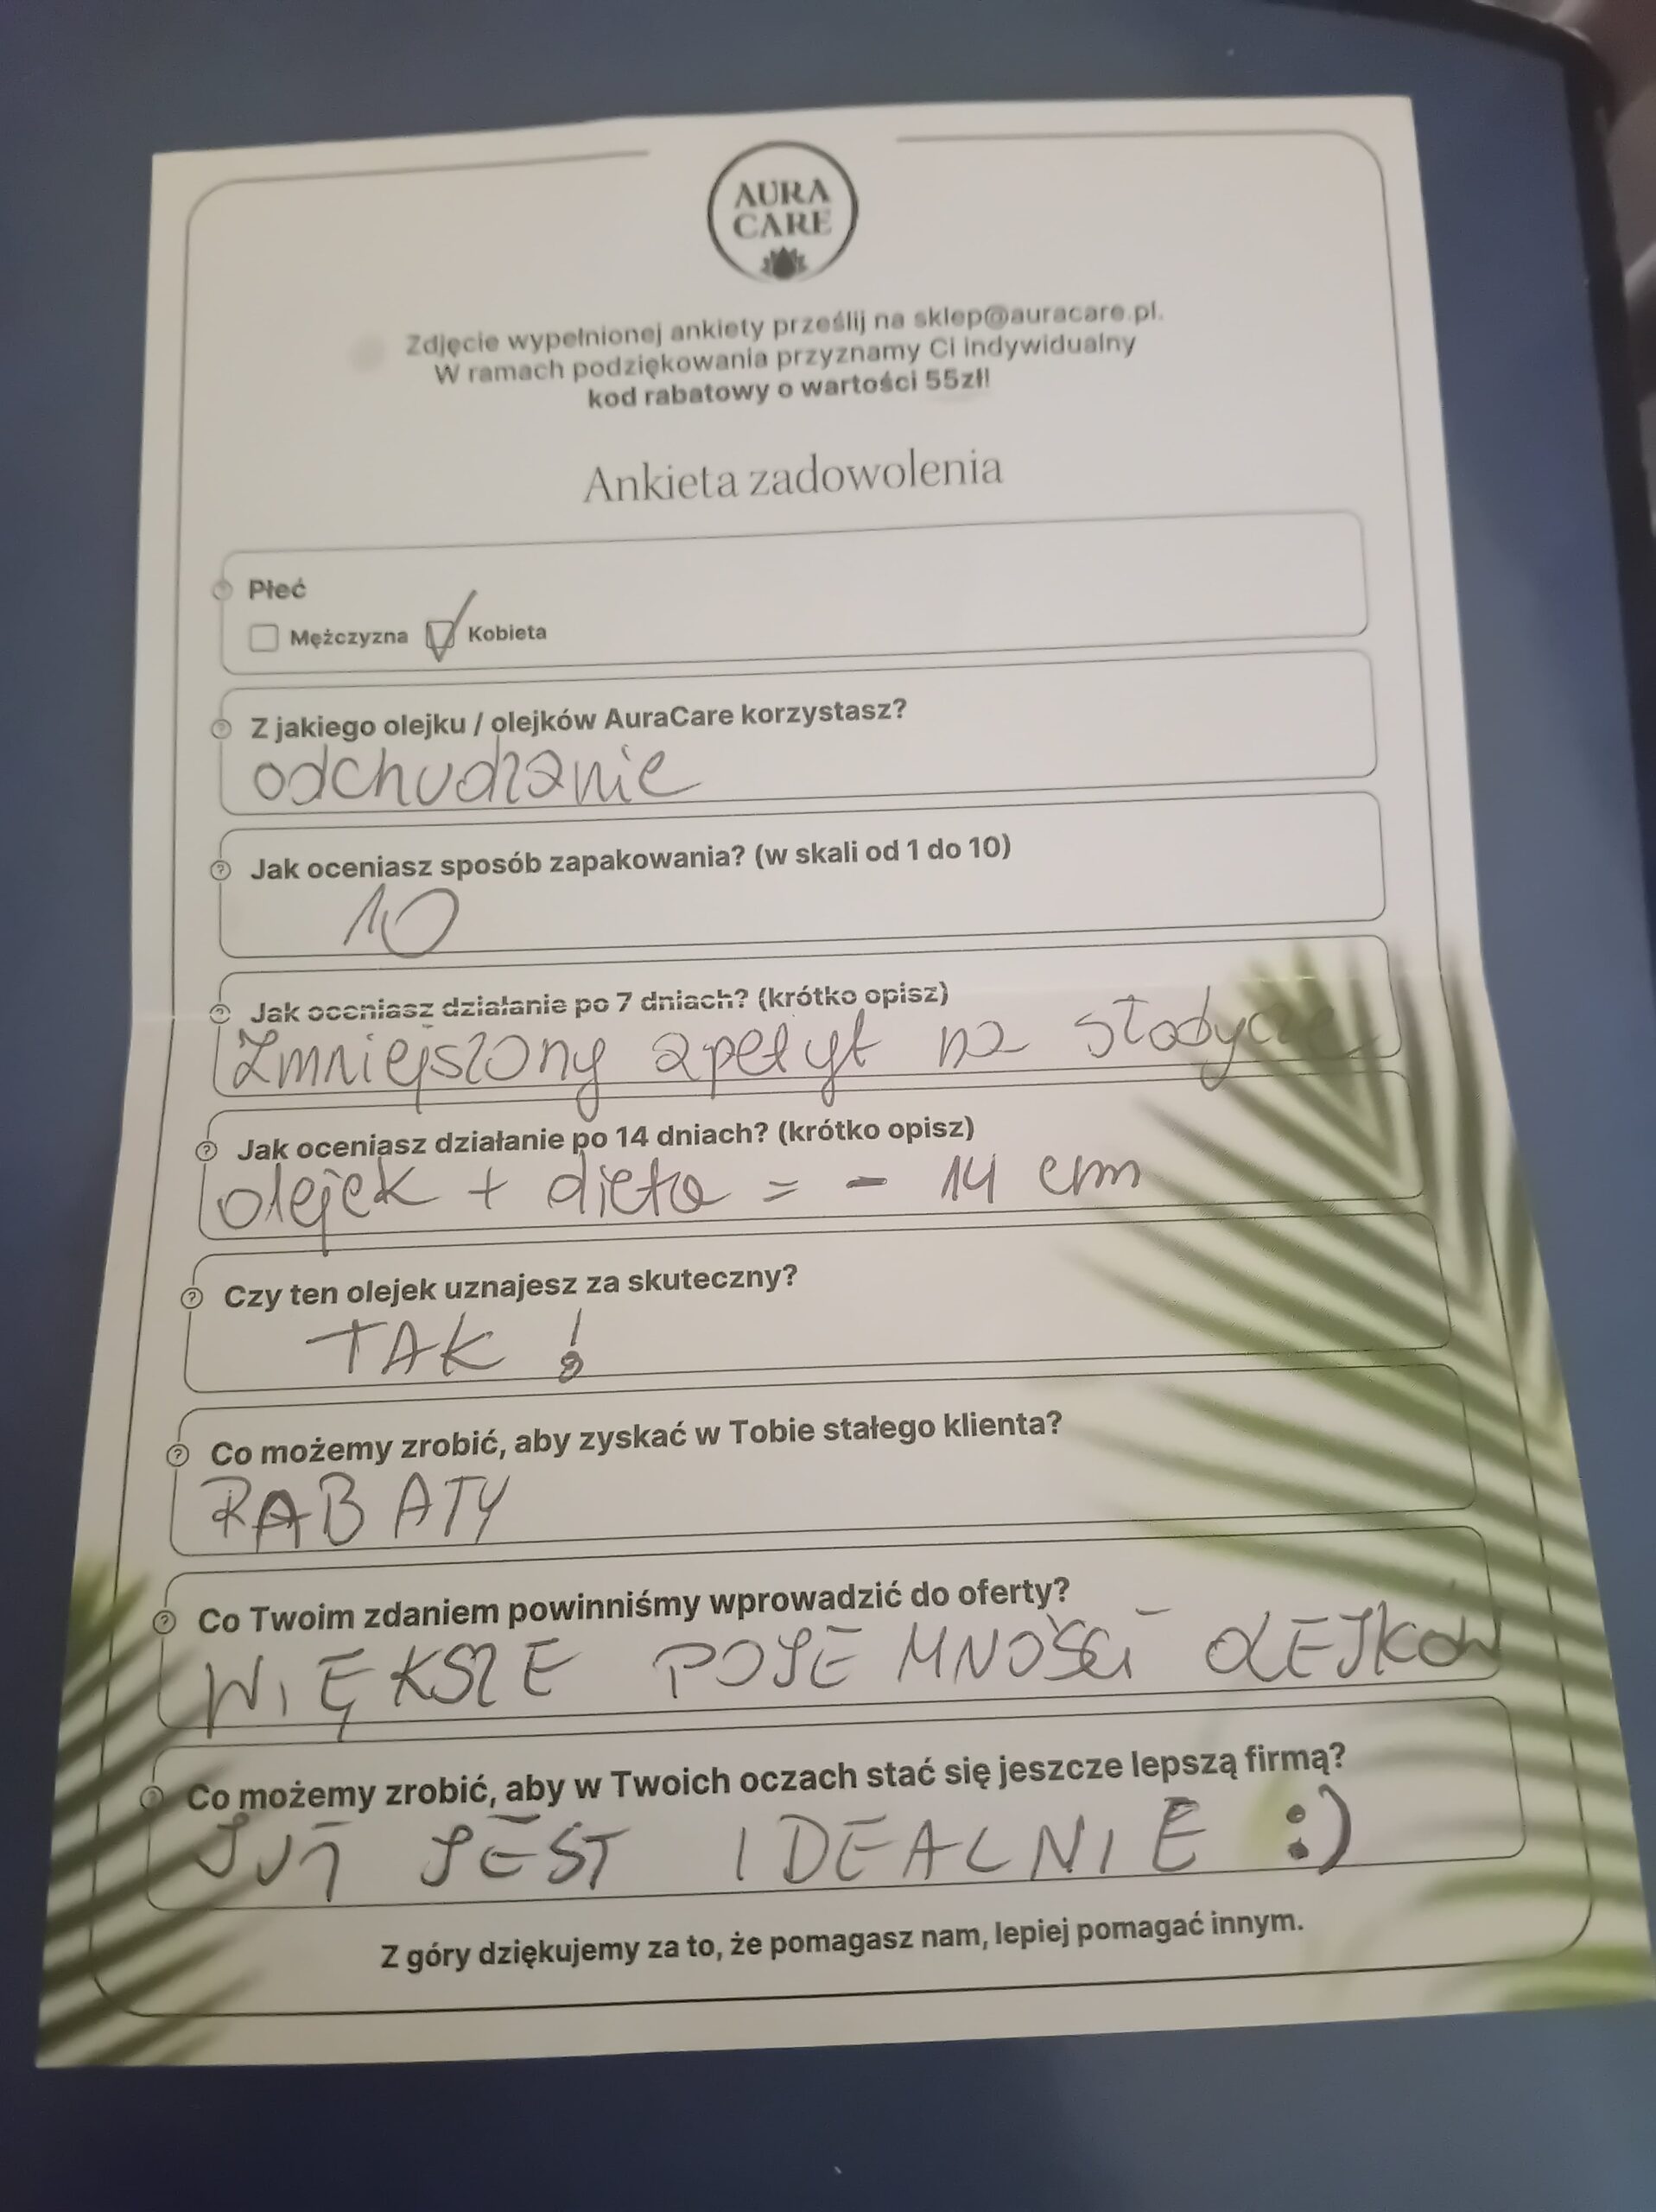 AURA
CARE
Zdjęcie wypełnionej ankiety prześlij na sklep@auracare.pl.
W ramach podziękowania przyznamy Ci indywidualny
kod rabatowy o wartości 55zł!
Ankieta zadowolenia
Płeć
Mężczyzna Kobieta
Z jakiego olejku / olejków AuraCare korzystasz?
odchudzanie
Jak oceniasz sposób zapakowania? (w skali od 1 do 10)
10
Jak oceniasz działanie po 7 dniach? (krótko opisz)
Zmniejszony apetyt na słodycze
Jak oceniasz działanie po 14 dniach? (krótko opisz)
olejek + dieta = - 14 cm
Czy ten olejek uznajesz za skuteczny?
TAK !
Co możemy zrobić, aby zyskać w Tobie stałego klienta?
RABATY
Co Twoim zdaniem powinniśmy wprowadzić do oferty?
WIĘKSZE POJEMNOŚCI OLEJKÓW
Co możemy zrobić, aby w Twoich oczach stać się jeszcze lepszą firmą?
JUŻ JEST IDEALNIE :)
Z góry dziękujemy za to, że pomagasz nam, lepiej pomagać innym.